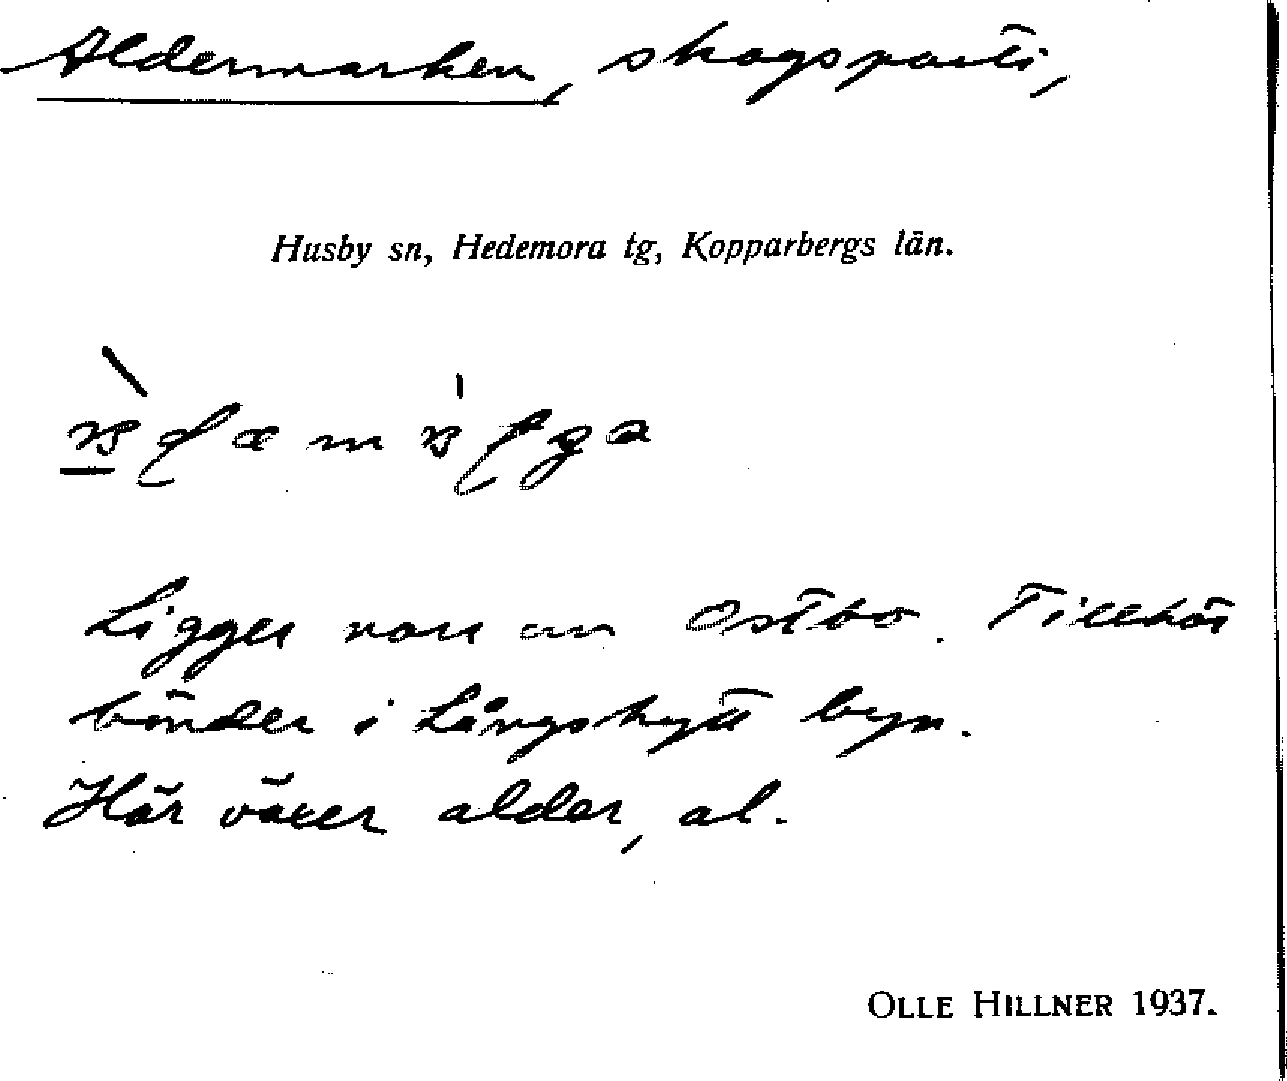 Aldermarken, skogsparti,
Husby sn, Hedemora tg, Kopparbergs län.
Ligger norr om Ostbo. Tillhör
bönder i Långshytt byn.
Här växer alder, al.
OLLE HILLNER 1937.